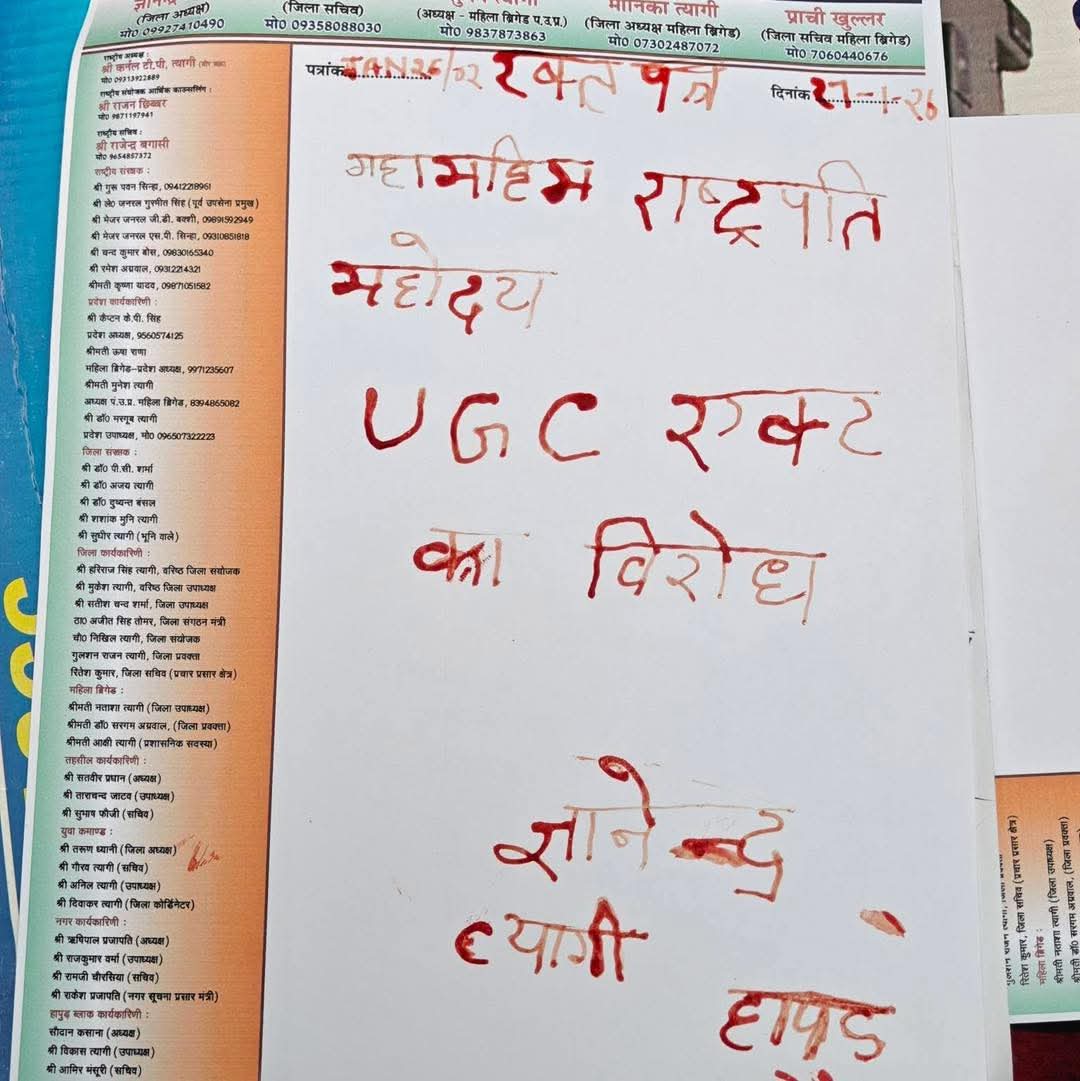 (जिला अध्यक्ष)
मो0 09927410490
(जिला सचिव)
मो0 09358088030
(अध्यक्ष - महिला ब्रिगेड प.उ.प्र.)
मो0 9837873863
मोनिका त्यागी
(जिला अध्यक्ष महिला ब्रिगेड)
मो0 07302487072
प्राची खुल्लर
(जिला सचिव महिला ब्रिगेड)
मो0 7060440676
राष्ट्रीय अध्यक्ष :
श्री कर्नल टी.पी. त्यागी
मो0 09313922889
राष्ट्रीय संयोजक आर्थिक काउन्सलिंग :
श्री राजन छिब्बर
मो0 9871197941
राष्ट्रीय सचिव :
श्री राजेन्द्र बगासी
मो0 9654857372
राष्ट्रीय संरक्षक :
श्री गुरू पवन सिन्हा, 09412218961
श्री ले0 जनरल गुरमीत सिंह (पूर्व उपसेना प्रमुख)
श्री मेजर जनरल जी.डी. बक्शी, 09891592949
श्री मेजर जनरल एस.पी. सिन्हा, 09310851818
श्री चन्द कुमार बोस, 09830165340
श्री रमेश अग्रवाल, 09312214321
श्रीमती कृष्णा यादव, 09871051582
प्रदेश कार्यकारिणी :
श्री कैप्टन के.पी. सिंह
प्रदेश अध्यक्ष, 9560574125
श्रीमती ऊषा राणा
महिला ब्रिगेड-प्रदेश अध्यक्ष, 9971235607
श्रीमती मुनेश त्यागी
अध्यक्ष पं.उ.प्र. महिला ब्रिगेड, 8394865082
श्री डॉ0 मरगूब त्यागी
प्रदेश उपाध्यक्ष, मो0 096507322223
जिला संरक्षक :
श्री डॉ0 पी.सी. शर्मा
श्री डॉ0 अजय त्यागी
श्री डॉ0 दुष्यन्त बंसल
श्री शशांक मुनि त्यागी
श्री सुधीर त्यागी (भूनि वाले)
जिला कार्यकारिणी :
श्री हरिराज सिंह त्यागी, वरिष्ठ जिला संयोजक
श्री मुकेश त्यागी, वरिष्ठ जिला उपाध्यक्ष
श्री सतीश चन्द शर्मा, जिला उपाध्यक्ष
ठा0 अजीत सिंह तोमर, जिला संगठन मंत्री
चौ0 निखिल त्यागी, जिला संयोजक
गुलशन राजन त्यागी, जिला प्रवक्ता
रितेश कुमार, जिला सचिव (प्रचार प्रसार क्षेत्र)
महिला ब्रिगेड :
श्रीमती नताशा त्यागी (जिला उपाध्यक्ष)
श्रीमती डॉ0 सरगम अग्रवाल, (जिला प्रवक्ता)
श्रीमती आक्षी त्यागी (प्रशासनिक सदस्या)
तहसील कार्यकारिणी :
श्री सतवीर प्रधान (अध्यक्ष)
श्री ताराचन्द जाटव (उपाध्यक्ष)
श्री सुभाष फौजी (सचिव)
युवा कमाण्ड :
श्री तरूण ध्यानी (जिला अध्यक्ष)
श्री गौरव त्यागी (सचिव)
श्री अनिल त्यागी (उपाध्यक्ष)
श्री दिवाकर त्यागी (जिला कोर्डिनेटर)
नगर कार्यकारिणी :
श्री ऋषिपाल प्रजापति (अध्यक्ष)
श्री राजकुमार वर्मा (उपाध्यक्ष)
श्री रामजी चौरसिया (सचिव)
श्री राकेश प्रजापति (नगर सूचना प्रसार मंत्री)
हापुड़ ब्लाक कार्यकारिणी :
सौदान कसाना (अध्यक्ष)
श्री विकास त्यागी (उपाध्यक्ष)
श्री आमिर मंसूरी (सचिव)
पत्रांक JAN26/02 रक्त पत्र दिनांक 27-1-26
महामहिम राष्ट्रपति
महोदय
UGC एक्ट
का विरोध
ज्ञानेन्द्र
त्यागी
हापुड़
रितेश कुमार, जिला सचिव (प्रचार प्रसार क्षेत्र)
महिला ब्रिगेड :
श्रीमती नताशा त्यागी (जिला उपाध्यक्ष)
श्रीमती डॉ0 सरगम अग्रवाल, (जिला प्रवक्ता)